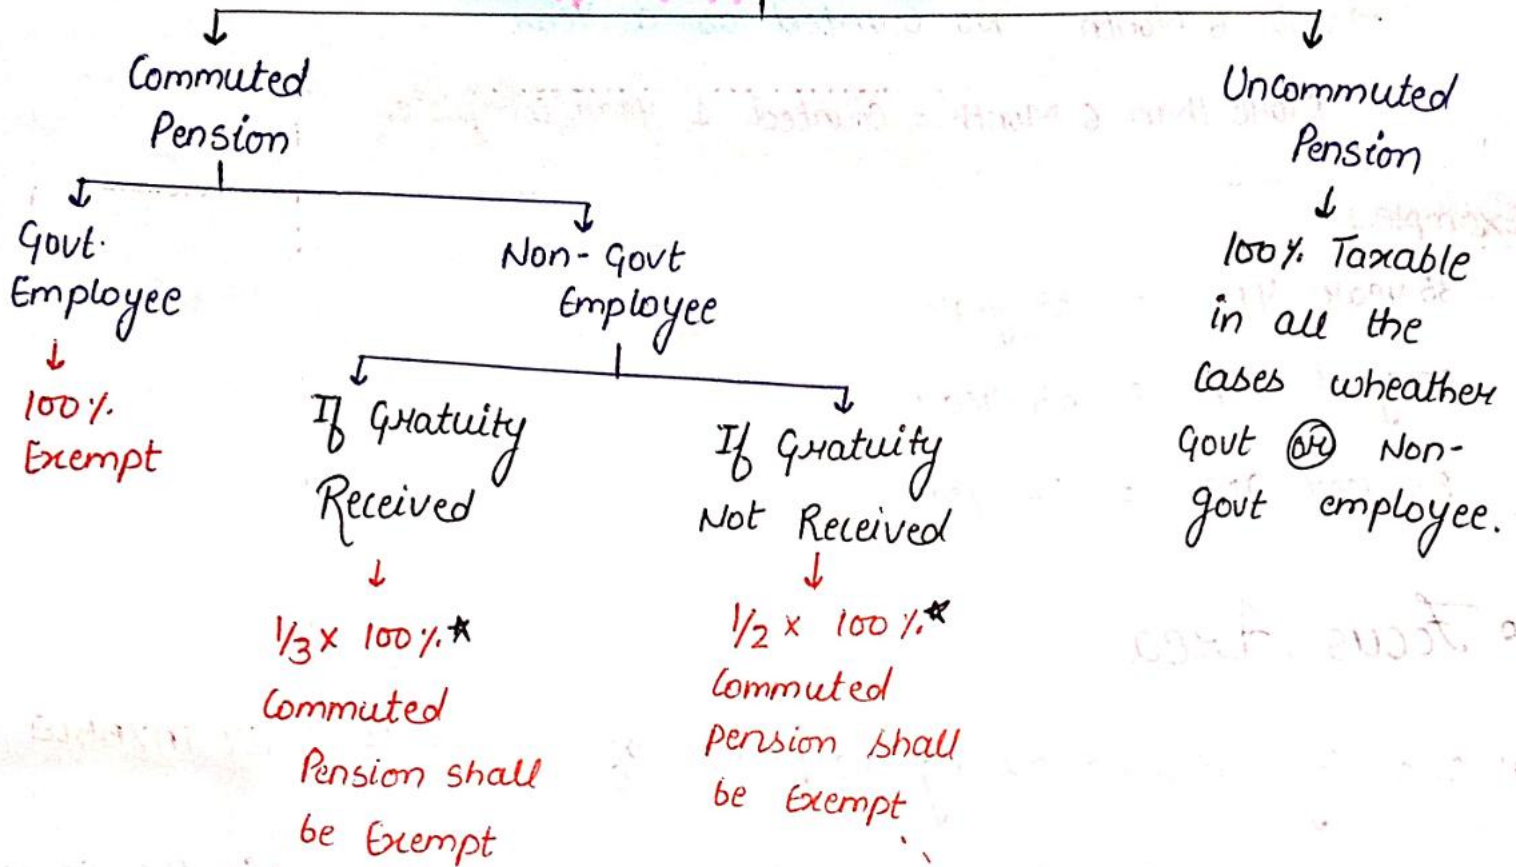 Commuted
Pension
Govt.
Employee
↓
100%.
Exempt
Non-Govt
Employee
If Gratuity
Received
↓
1/3 x 100%.★
Commuted
Pension shall
be Exempt
If Gratuity
Not Received
↓
1/2 x 100%.★
Commuted
pension shall
be Exempt
Uncommuted
Pension
↓
100%. Taxable
in all the
Cases wheather
Govt OR Non-
govt employee.
6 Month
More than 6 Month = Counted 1
Example:
Focus Area